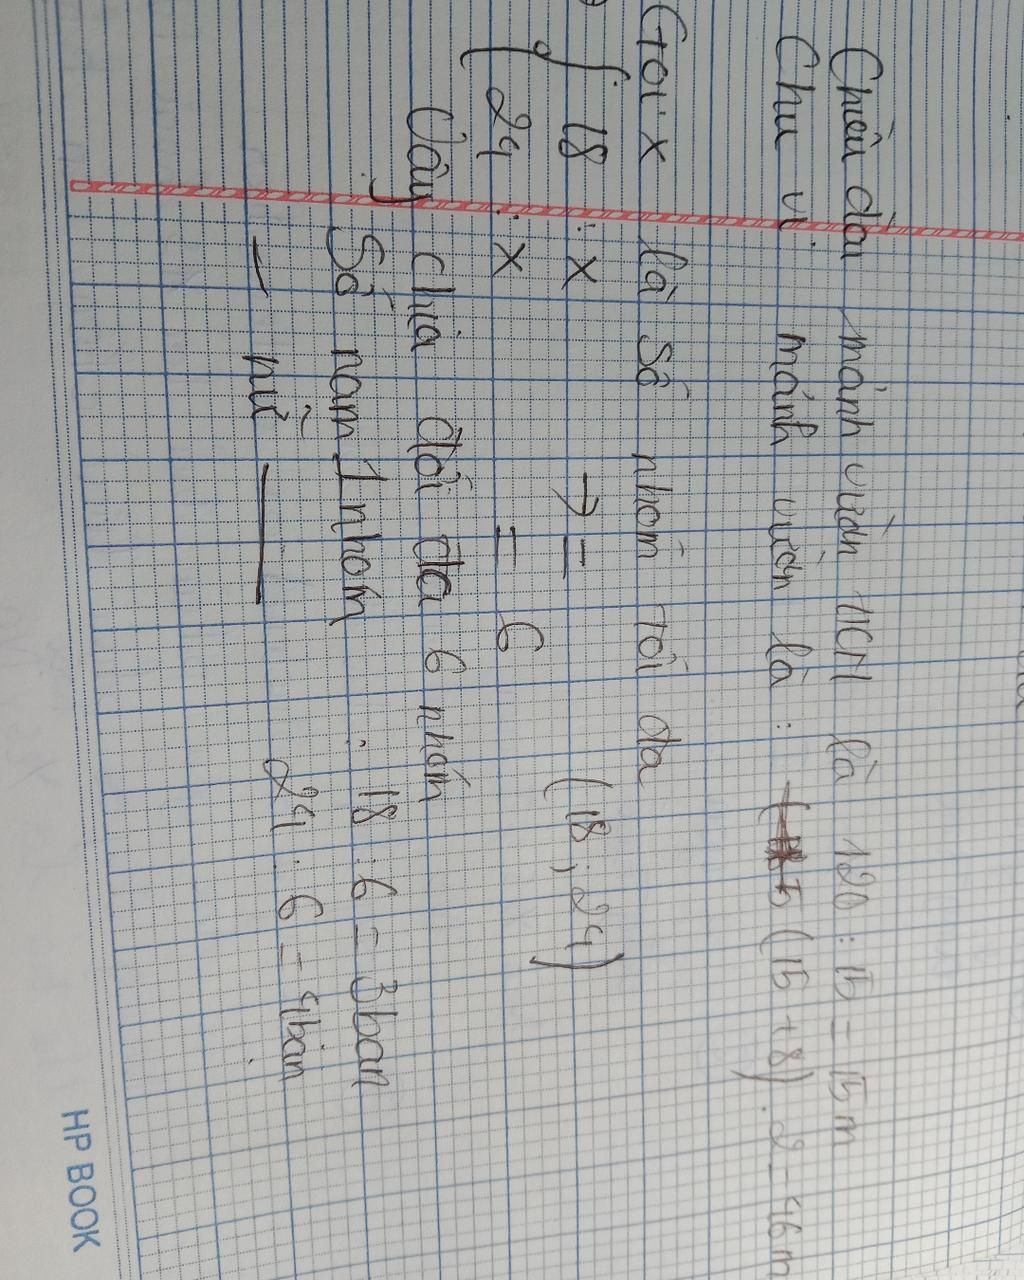 Chiều dài mảnh vườn HCN là 120 : 15 = 15 m
Chu vi mảnh vườn là : (15 + 8) . 2 = 46 m
Gọi x là số nhóm tối đa
18 : x → = (18 ; 24)
24 : x = 6
Vậy chia đối đa 6 nhóm
Số nam 1 nhóm . 18 : 6 = 3 bạn
— nữ — 24 : 6 = 4 bạn
HP BOOK